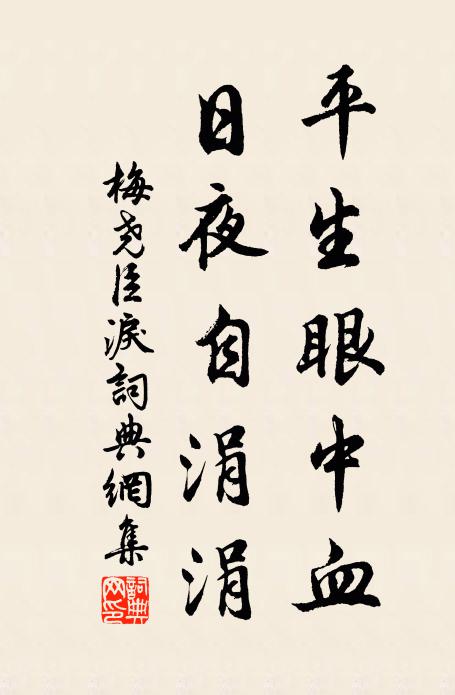 平生眼中血
日夜自涓涓
梅堯臣淚詞典網集
詞典網印